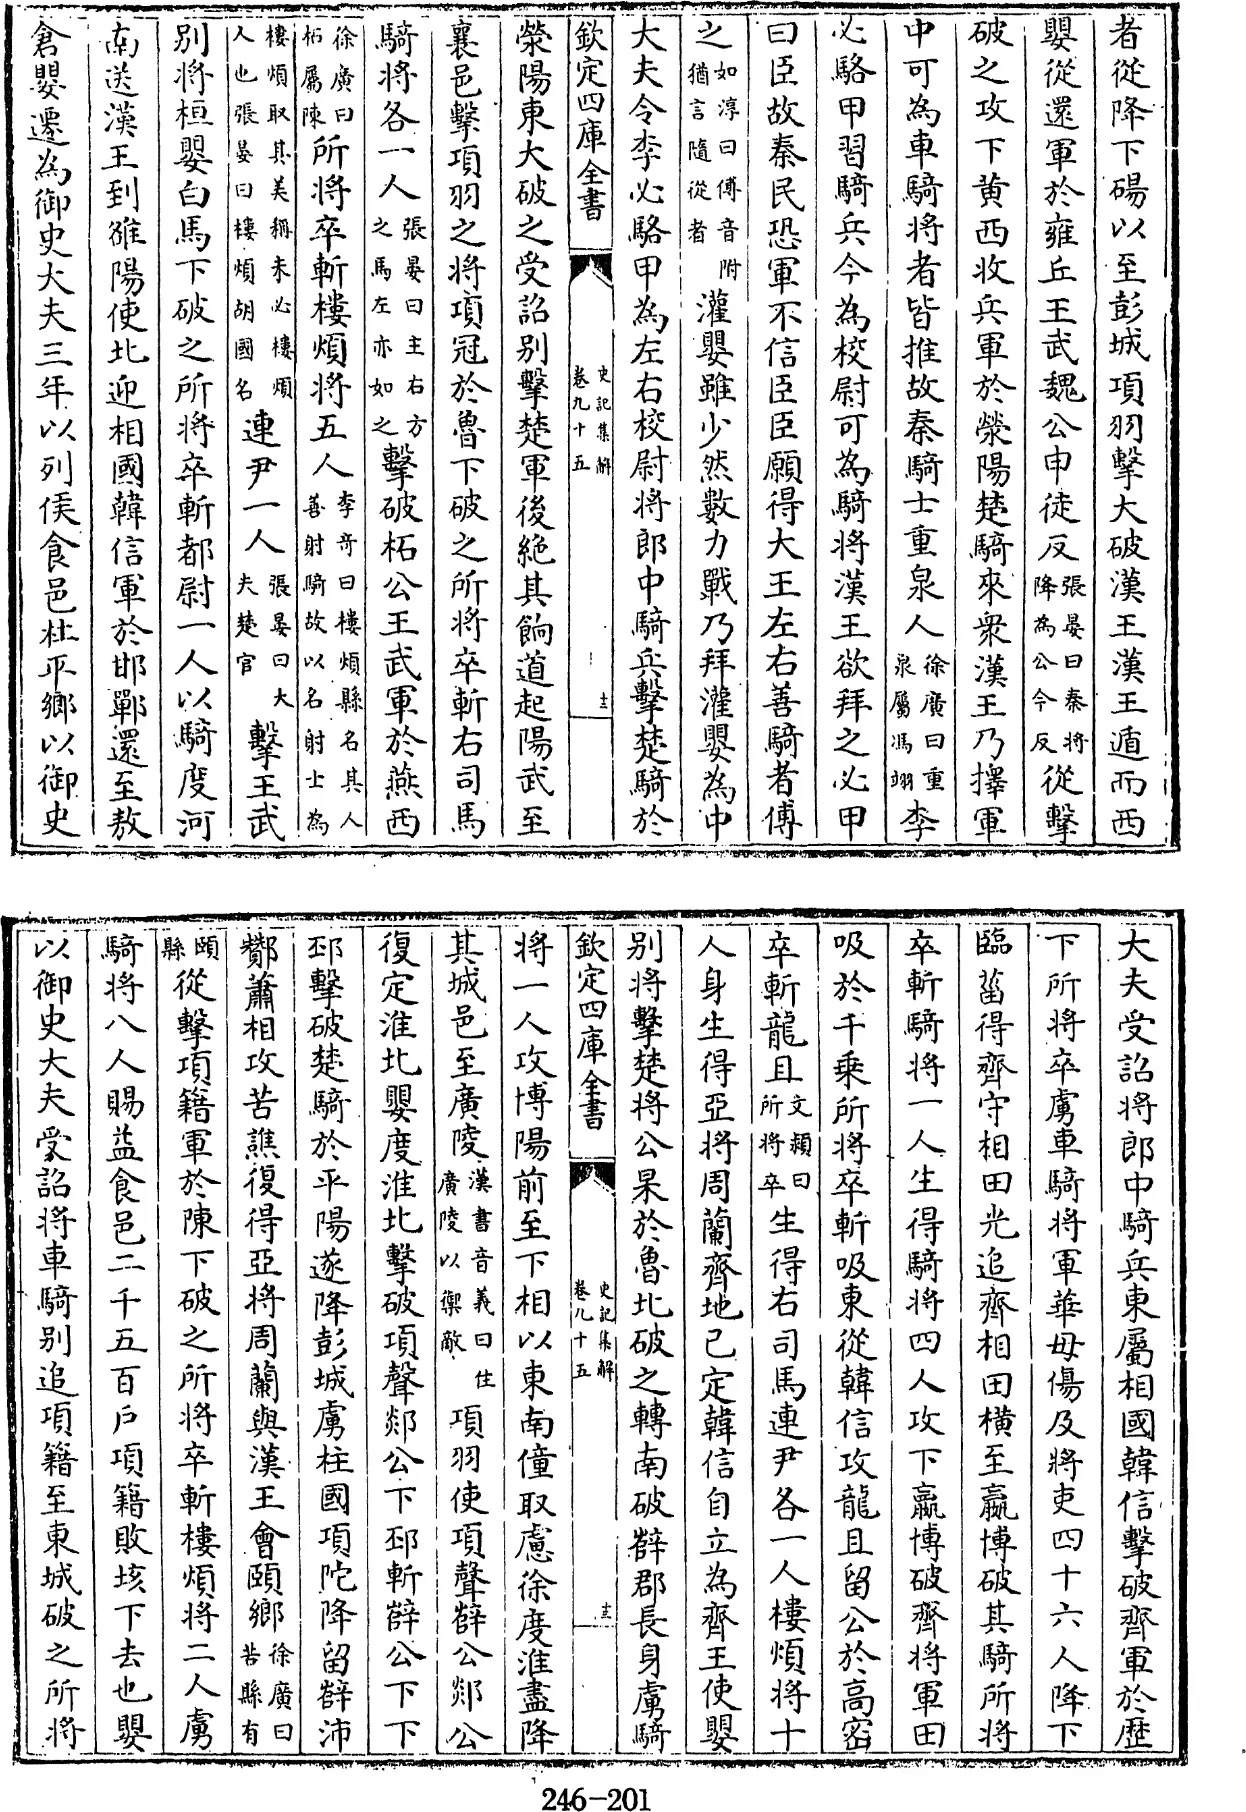 者從降下碭以至彭城項羽擊大破漢王漢王遁而西
嬰從還軍於雍丘王武魏公申徒反張晏曰秦將降為公今反從擊
破之攻下黄西收兵軍於滎陽楚騎來衆漢王乃擇軍
中可為車騎将者皆推故秦騎士重泉人徐廣曰重泉屬馮翊李
必駱甲習騎兵今為校尉可為騎將漢王欲拜之必甲
曰臣故秦民恐軍不信臣臣願得大王左右善騎者傅
之如淳曰傅音附猶言隨從者灌嬰雖少然數力戰乃拜灌嬰為中
大夫令李必駱甲為左右校尉将郎中騎兵擊楚騎於
欽定四庫全書
史記集解
卷九十五
十二
滎陽東大破之受詔别擊楚軍後絶其餉道起陽武至
襄邑擊項羽之将項冠於魯下破之所将卒斬右司馬
騎将各一人張晏曰主右方之馬左亦如之擊破柘公王武軍於燕西
徐廣曰柘屬陳所將卒斬樓煩將五人李奇曰樓煩縣名其人善射騎故以名射士為
樓煩取其美稱未必樓煩人也張晏曰樓煩胡國名連尹一人張晏曰大夫楚官擊王武
别將桓嬰白馬下破之所將卒斬都尉一人以騎度河
南送漢王到雒陽使北迎相國韓信軍於邯鄲還至敖
倉嬰遷為御史大夫三年以列侯食邑杜平鄉以御史
大夫受詔將郎中騎兵東屬相國韓信擊破齊軍於歴
下所將卒虜車騎將軍華毋傷及將吏四十六人降下
臨菑得齊守相田光追齊相田橫至嬴博破其騎所將
卒斬騎將一人生得騎將四人攻下嬴博破齊將軍田
吸於千乘所將卒斬吸東從韓信攻龍且留公於高密
卒斬龍且文穎曰所將卒生得右司馬連尹各一人樓煩將十
人身生得亞將周蘭齊地已定韓信自立為齊王使嬰
别將擊楚將公杲於魯北破之轉南破薛郡長身虜騎
欽定四庫全書
史記集解
卷九十五
十三
將一人攻博陽前至下相以東南僮取慮徐度淮盡降
其城邑至廣陵漢書音義曰住廣陵以禦敵項羽使項聲薛公郯公
復定淮北嬰度淮北擊破項聲郯公下邳斬薛公下下
邳擊破楚騎於平陽遂降彭城虜柱國項陀降留薛沛
酇蕭相攻苦譙復得亞將周蘭與漢王會頤鄉徐廣曰苦縣有
頤縣從擊項籍軍於陳下破之所將卒斬樓煩將二人虜
騎將八人賜益食邑二千五百戶項籍敗垓下去也嬰
以御史大夫受詔將車騎别追項籍至東城破之所將
246-201